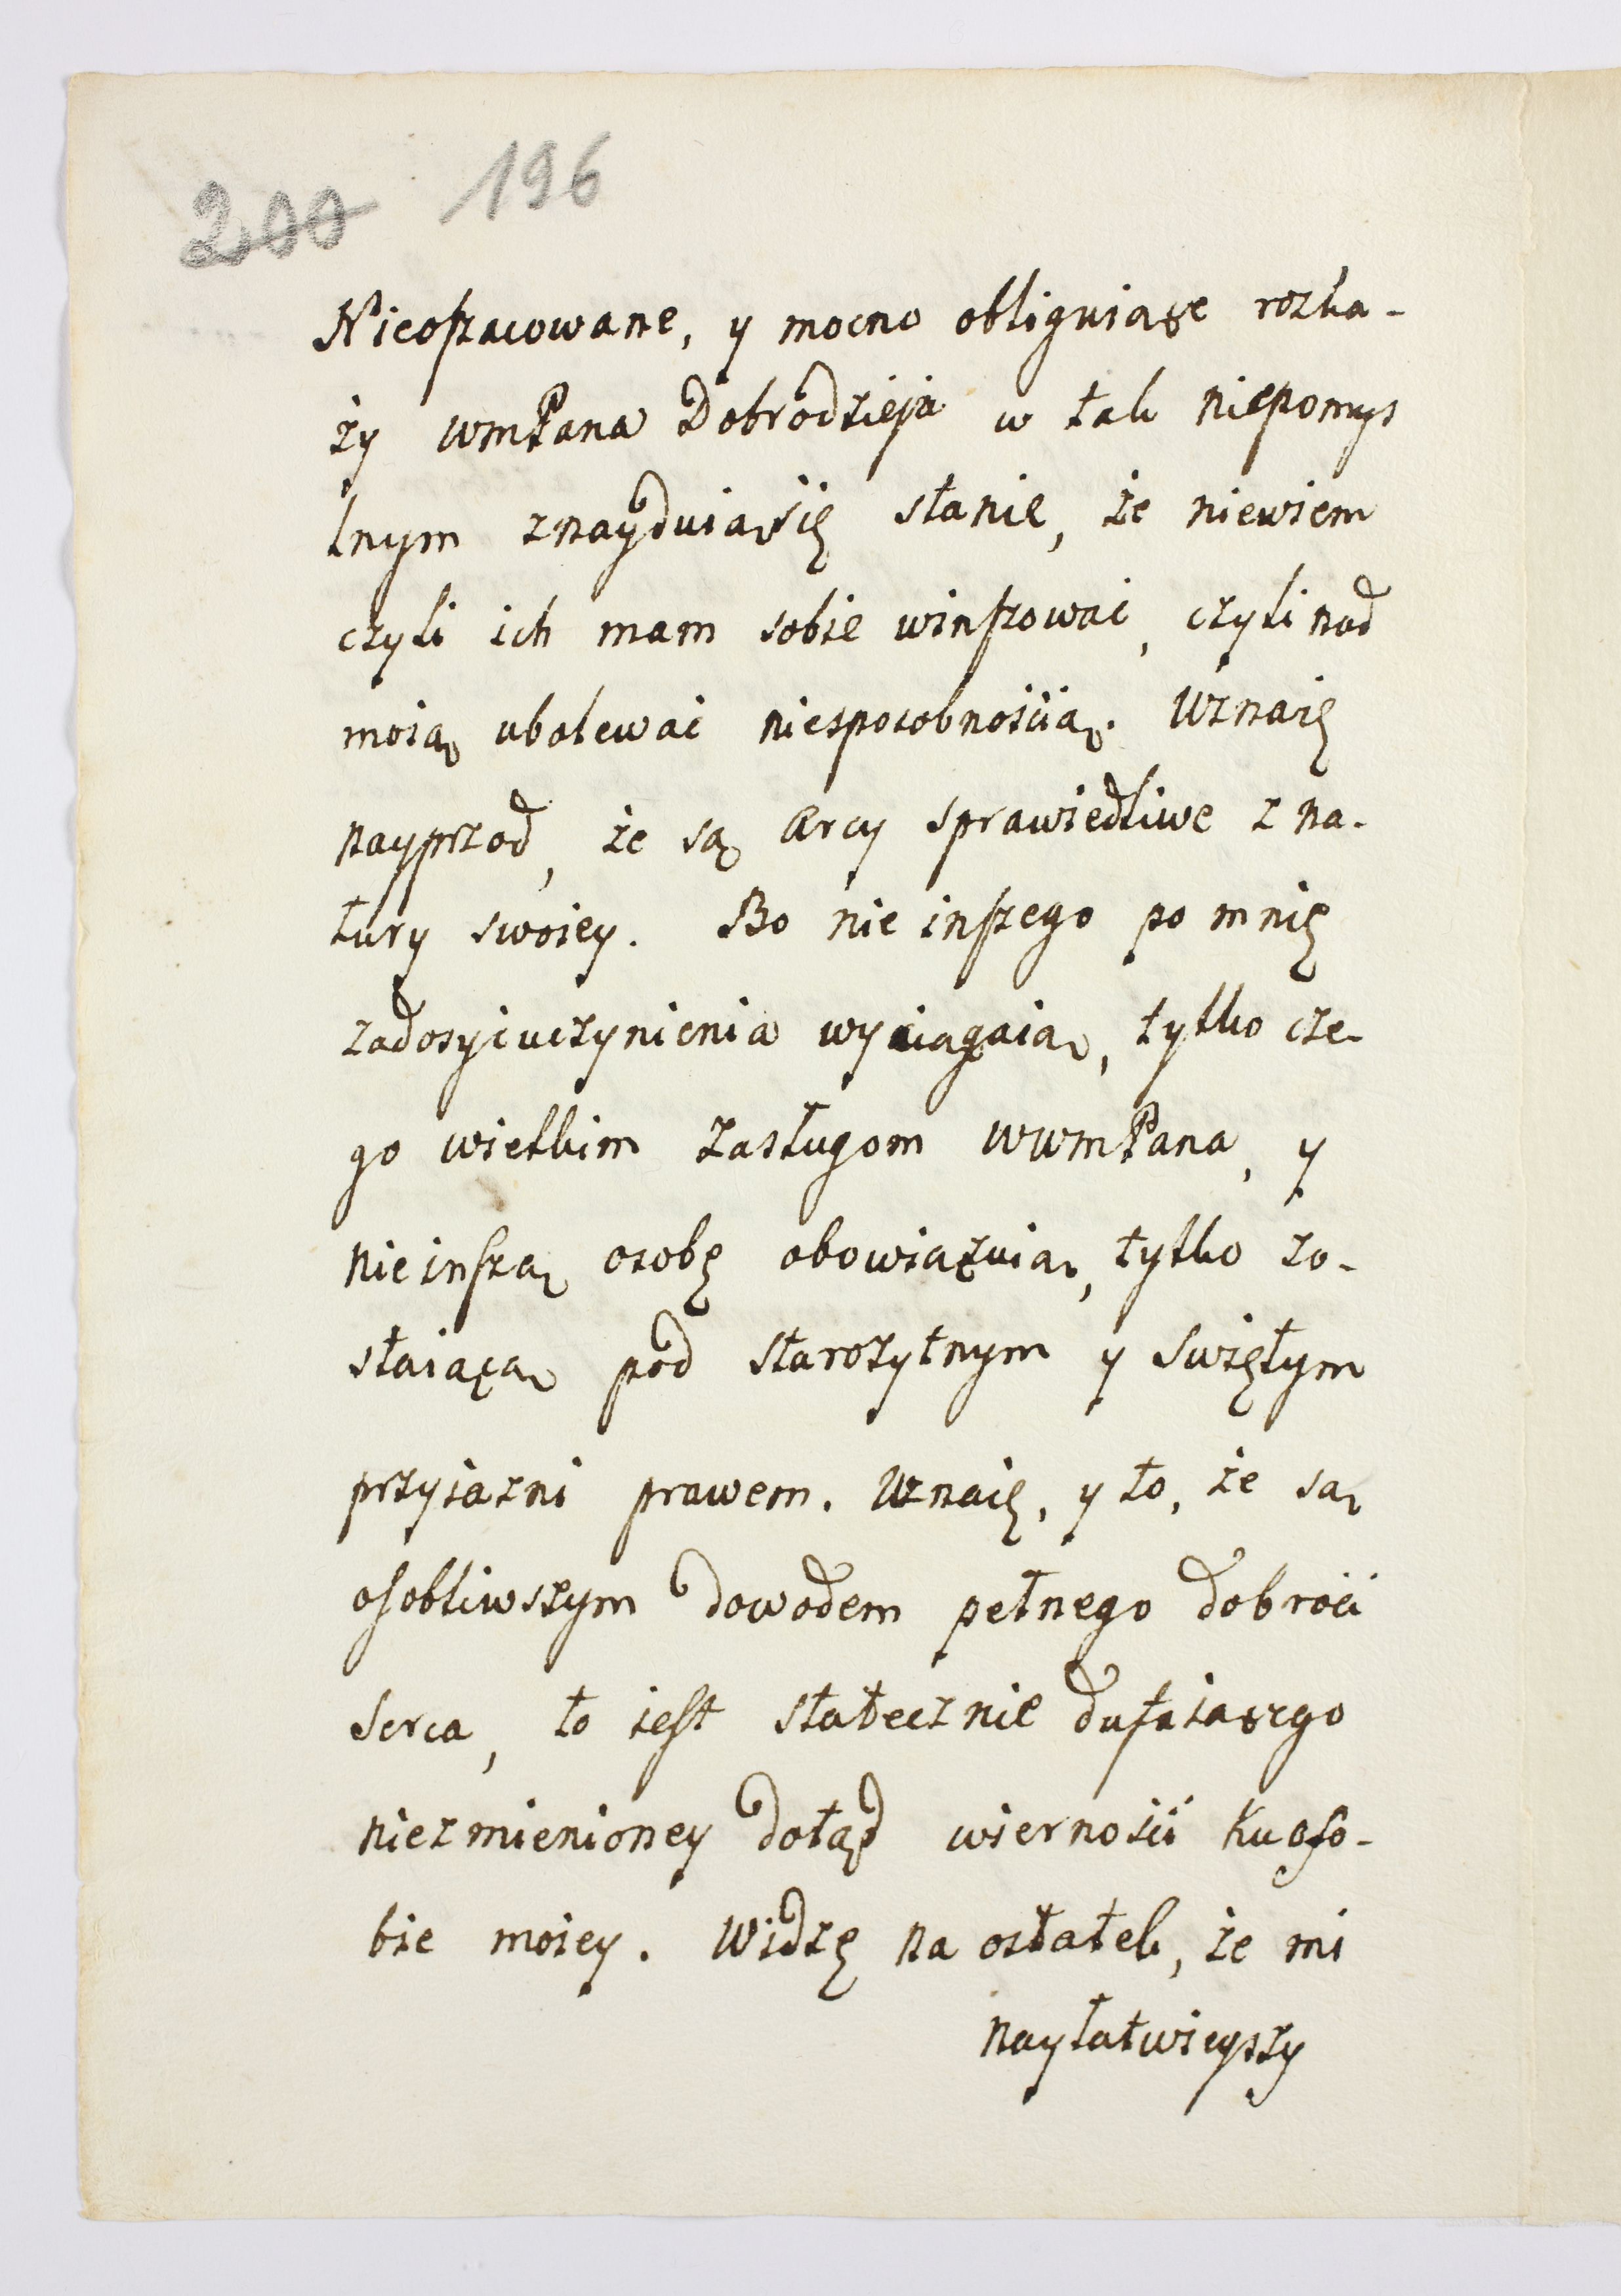 200 196
Nieoszacowane, y mocno obliguiące rozka-
zy WmPana Dobrodzieja w tak niepomys
lnym znayduią się stanie, że niewiem
czyli ich mam sobie winszować, czyli nad
moią ubolewać niesposobnością. Uznaię
nayprzod, że są arcy sprawiedliwe z na-
tury swoiey. Bo nie inszego po mnię
zadosyć uczynienia wyciągaią, tylko cze-
go wielkim zasługom WWmPana, y
nie inszą osobę obowiązuią, tylko zo-
staiącą pod starożytnym y Swiętym
przyiazni prawem. Uznaię, y to, że są
osobliwszym dowodem pełnego dobroci
Serca, to iest statecznie dufaiącego
niezmienioney dotąd wierności Ku oso-
bie moiey. Widzę na ostatek, że mi
nayłatwieyszy